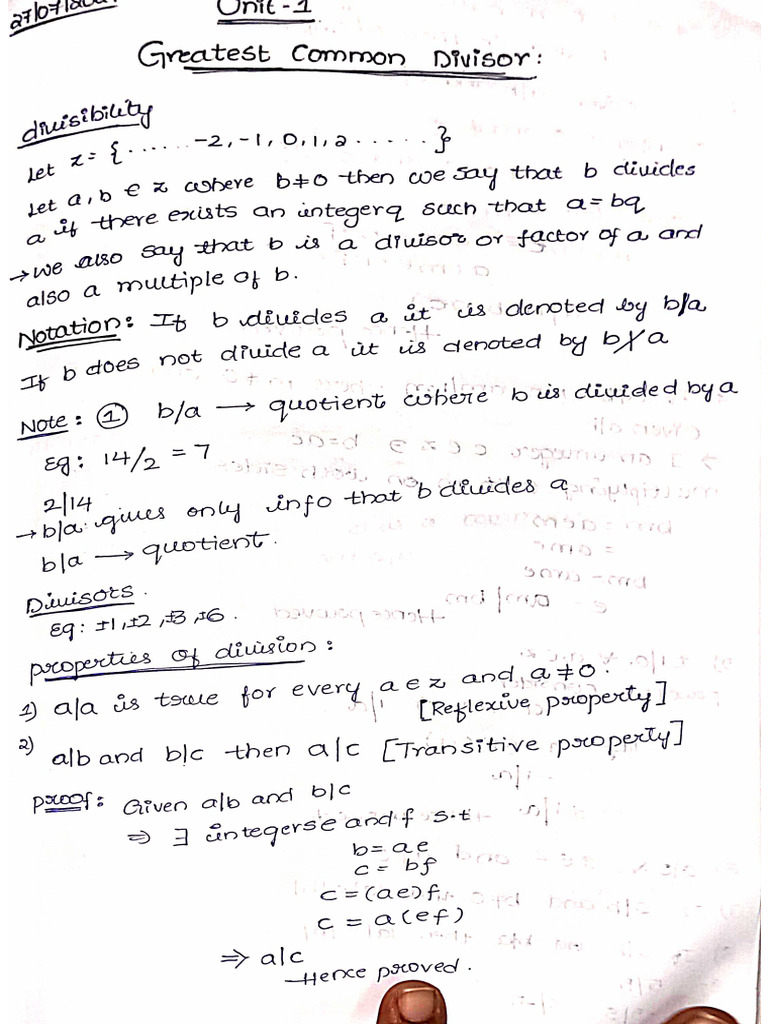 27/07/
Unit-1
Greatest Common Divisor:
divisibility
Let z = {...... -2, -1, 0, 1, 2 ......}
Let a, b ∈ z where b≠0 then we say that b divides
a if there exists an integer q such that a = bq
→ we also say that b is a divisor or factor of a and
also a multiple of b.
Notation: If b divides a it is denoted by b/a
If b does not divide a it is denoted by b∤a
Note: ① b/a → quotient where b is divided by a
Eg: 14/2 = 7
2|14
→ b/a gives only info that b divides a
b/a → quotient.
Divisors.
Eg: ±1, ±2, ±3, ±6.
properties of division:
1) a/a is true for every a ∈ z and a ≠ 0.
[Reflexive property]
2) a|b and b|c then a|c [Transitive property]
proof: Given a|b and b|c
⇒ ∃ integers e and f s.t
b = ae
c = bf
c = (ae)f
c = a(ef)
⇒ a|c
Hence proved.